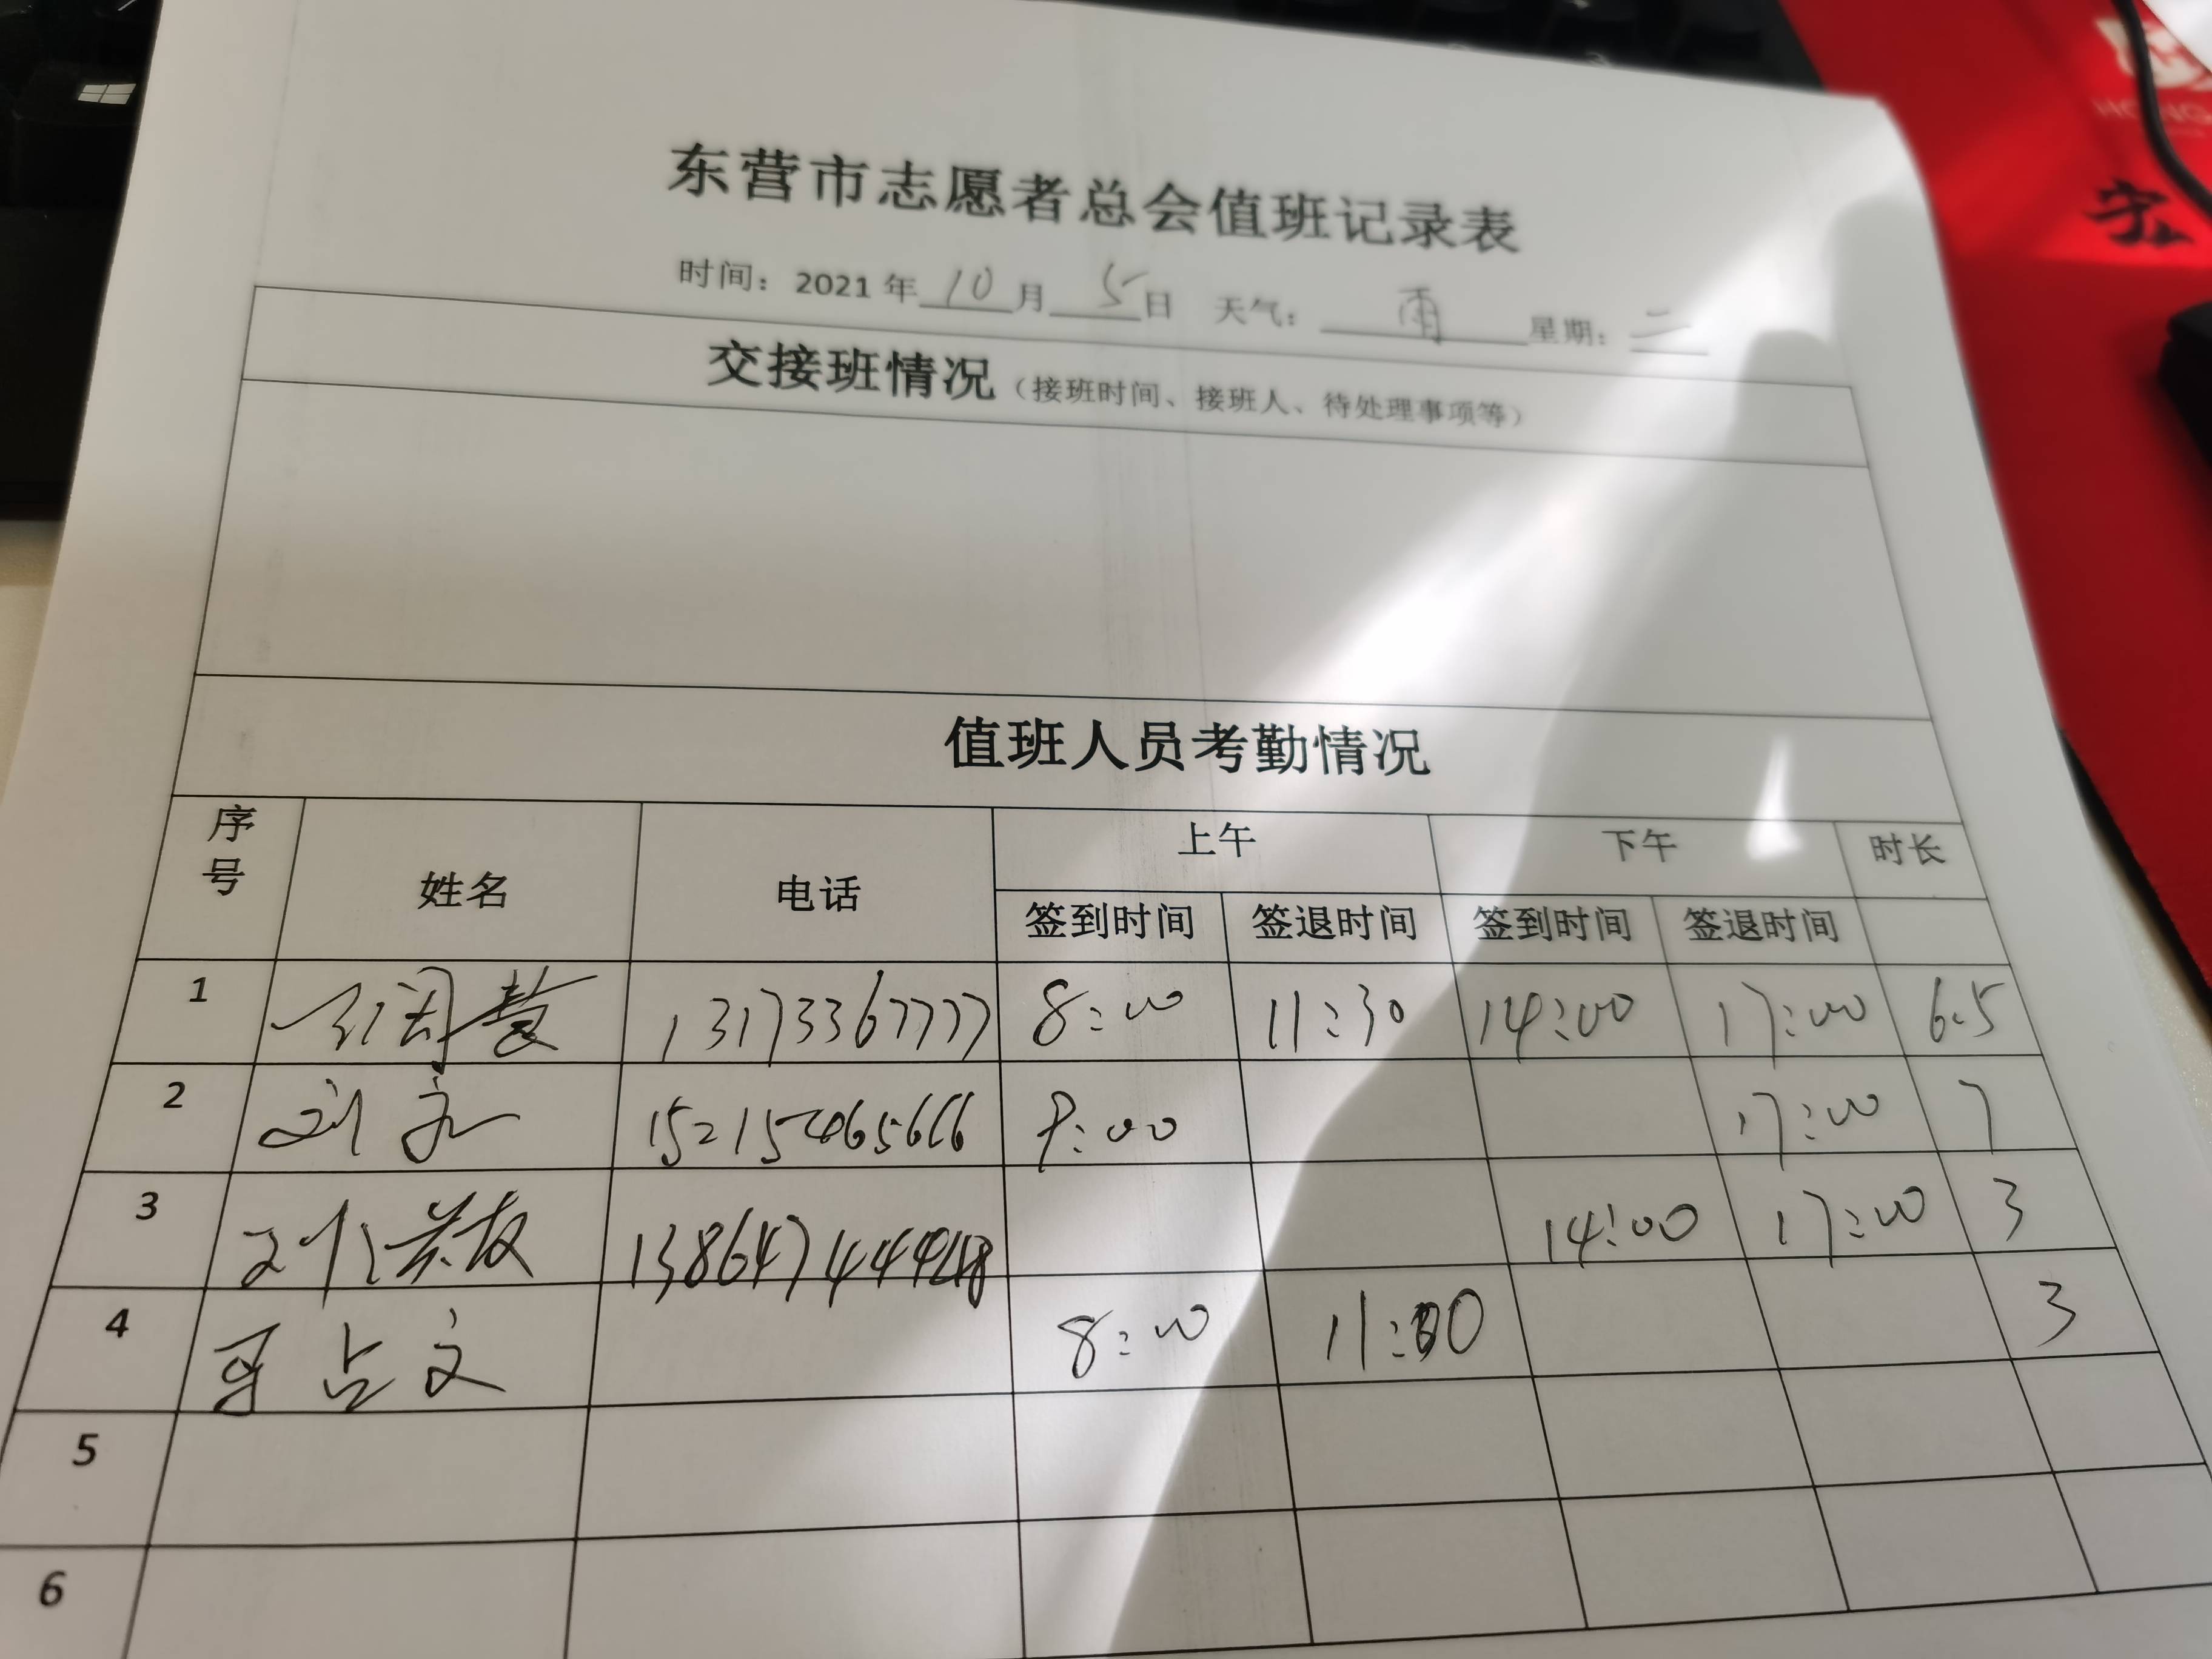 东营市志愿者总会值班记录表
时间：2021年 10 月 5 日 天气： 雨 星期：二
交接班情况（接班时间、接班人、待处理事项等）
值班人员考勤情况
序号 姓名 电话 上午 下午 时长
签到时间 签退时间 签到时间 签退时间
1 13173367777 8:00 11:30 14:00 17:00 6.5
2 刘永 9:00 17:00 7
3 14:00 17:00 3
4 占文 8:00 11:00 3
5
6
宏